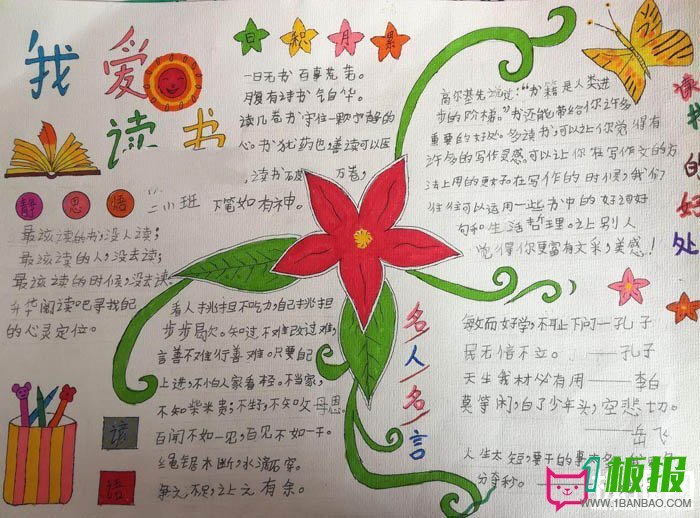 我爱读书
日积月累
一日无书 百事荒芜。
腹有诗书气自华。
读几卷书 守住一颗宁静的
心。书犹药也，善读可以医
读书破 万卷，
小班 下笔如有神。
静 思 悟
最该读的书，没人读；
最该读的人，没去读；
最该读的时候，没去读
升华阅读吧寻找自己
的心灵定位。
高尔基先生说："书籍是人类进
步的阶梯。"书还能带给你许多
重要的好处。多读书，可以让你觉得有
许多的写作灵感。可以让你在写作文的方
法上用的更好。在写作的时候，我们
往往可以运用一些书中的好词好
句和生活哲理。让别人
觉得你更富有文采，美感！
读书的好处
看人挑担不吃力，自己挑担
步步歇。知过不难改过难，
言善不难行善难。只要自己
上进，不怕人家看轻。不当家，
不知柴米贵；不生子，不知父母恩。
百闻不如一见，百见不如一干。
绳锯木断，水滴石穿。
争之不足，让之有余。
谚
语
名人名言
敏而好学，不耻下问——孔子
民无信不立。——孔子
天生我材必有用——李白
莫等闲，白了少年头，空悲切。
——岳飞
人生太短，要干的事
分夺秒。
板报
WWW.1BANBAO.COM